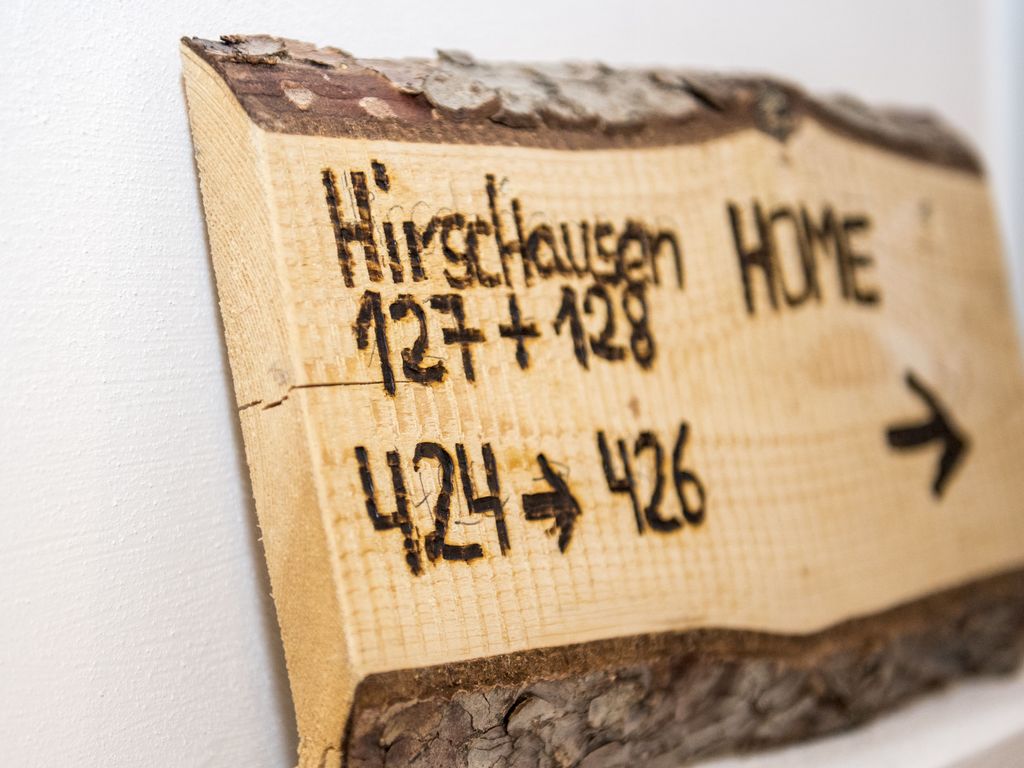 Hirschausen HOME
127 + 128
424 → 426 →